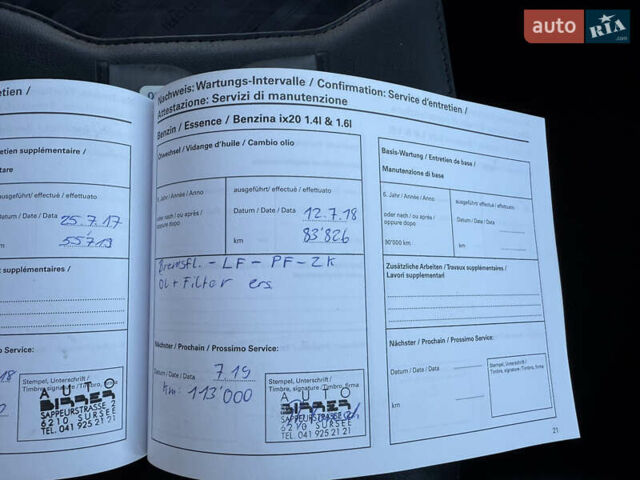 auto RIA .com
etien /
etien supplémentaire /
tare
ausgeführt / effectué / effettuato
Datum / Date / Data 25.7.17
km 55'713
t supplémentaires /
rossimo Service:
18
Stempel, Unterschrift /
Timbre, signature / Timbro, firma
AUTO
SAPPEURSTRASSE 2
6210 SURSEE
TEL. 041 925 21 21
Nachweis: Wartungs-Intervalle / Confirmation: Service d'entretien /
Attestazione: Servizi di manutenzione
Benzin / Essence / Benzina ix20 1.4l & 1.6l
Ölwechsel / Vidange d'huile / Cambio olio
Jahr / Année / Anno
ausgeführt / effectué / effettuato
oder nach / ou après /
oppure dopo
Datum / Date / Data 12.7.18
km 83'826
Bremsfl. - LF - PF - ZK
Öl + Filter ers.
Nächster / Prochain / Prossimo Service:
Datum / Date / Data 7.19
km: 113'000
Stempel, Unterschrift /
Timbre, signature / Timbro, firma
AUTO
SAPPEURSTRASSE 2
6210 SURSEE
TEL. 041 925 21 21
Basis-Wartung / Entretien de base /
Manutenzione di base
6. Jahr / Année / Anno
ausgeführt / effectué / effettuato
oder nach / ou après /
oppure dopo
Datum / Date / Data
90'000 km
km
Zusätzliche Arbeiten / Travaux supplémentaires /
Lavori supplementari
Nächster / Prochain / Prossimo Service:
Datum / Date / Data
km
Stempel, Unterschrift /
Timbre, signature / Timbro, firma
21